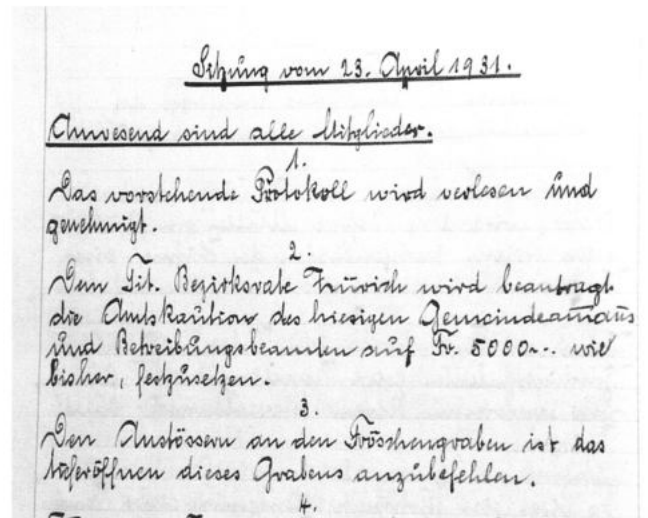 Sitzung vom 23. April 1931.
Anwesend sind alle Mitglieder.
1.
Das vorstehende Protokoll wird verlesen und
genehmigt.
2.
Dem Tit. Bezirksrate Zürich wird beantragt
die Amtskaution des hiesigen Gemeindeamanns
und Betreibungsbeamten auf Fr. 5000-. wie
bisher, festzusetzen.
3.
Den Anstössern an den Fröschengraben ist das
tieferöffnen dieses Grabens anzubefehlen.
4.